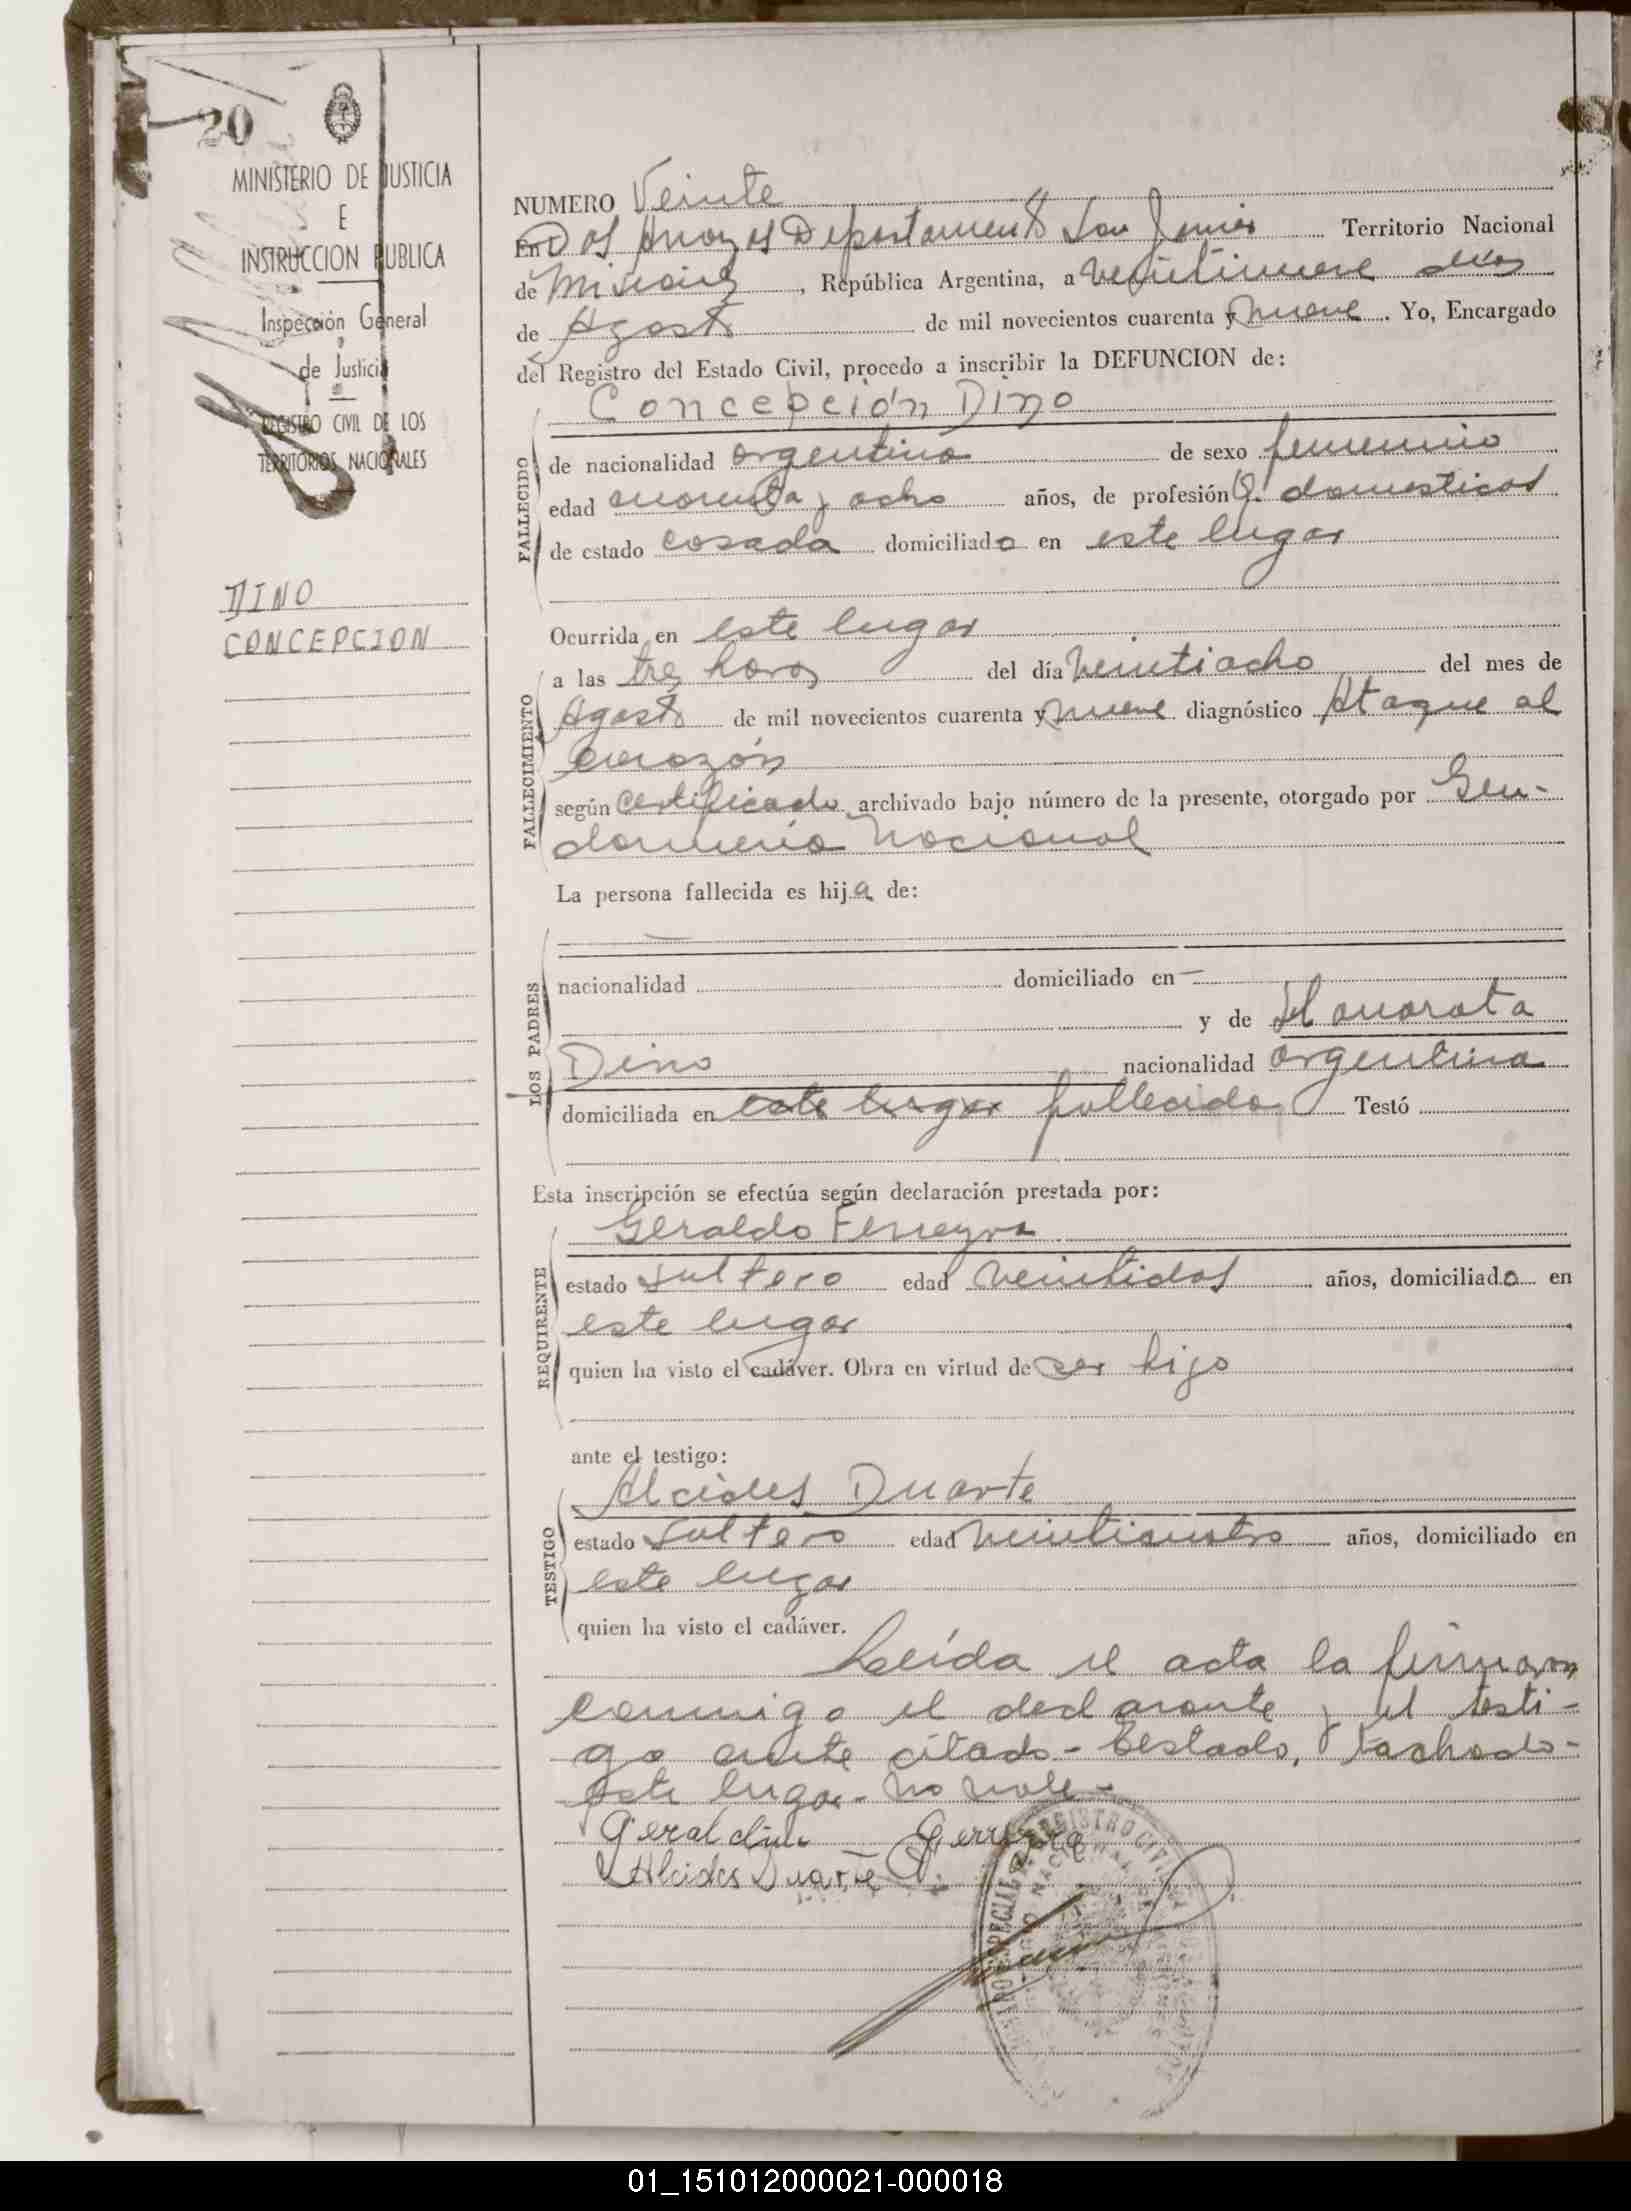 20
MINISTERIO DE JUSTICIA
E
INSTRUCCION PUBLICA
Inspección General
de Justicia
REGISTRO CIVIL DE LOS
TERRITORIOS NACIONALES
DINO
CONCEPCION
NUMERO Veinte
En Dos Arroyos Departamento San Javier Territorio Nacional
de Misiones, República Argentina, a veintinueve dias
de Agosto de mil novecientos cuarenta y nueve. Yo, Encargado
del Registro del Estado Civil, procedo a inscribir la DEFUNCION de:
Concepción Dino
FALLECIDO
de nacionalidad argentina de sexo femenino
edad cuarenta y ocho años, de profesión Q. domesticos
de estado casada domiciliada en este lugar
Ocurrida en este lugar
FALLECIMIENTO
a las tres horas del día veintiocho del mes de
Agosto de mil novecientos cuarenta y nueve diagnóstico Ataque al
corazón
según certificado archivado bajo número de la presente, otorgado por Gen-
darmeria Nacional
La persona fallecida es hija de:
LOS PADRES
nacionalidad domiciliado en —
y de Honorata
Dino nacionalidad argentina
domiciliada en este lugar fallecida Testó
Esta inscripción se efectúa según declaración prestada por:
Geraldo Ferreyra
REQUIRENTE
estado soltero edad veintidos años, domiciliado en
este lugar
quien ha visto el cadáver. Obra en virtud de ser hijo
ante el testigo:
Alcides Duarte
TESTIGO
estado soltero edad veinticuatro años, domiciliado en
este lugar
quien ha visto el cadáver.
Leída el acta la firmaron
conmigo el declarante y el testi-
go ante citado - Testado, tachado -
este lugar - no vale -
Alcides Duarte
REGISTRO CIVIL
01_151012000021-000018